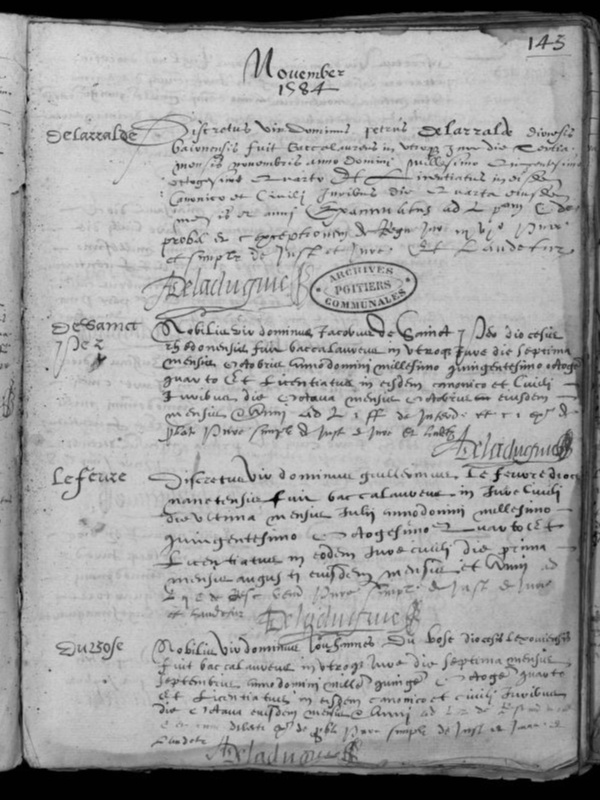 143
November
1584
Delarralde
Discretus vir dominus petrus Delarralde diocesis
baionensis fuit baccalaureus in utroq Jure die tertia
mensis novembris anno domini millesimo quingentesimo
octogesimo quarto Et Licentiatus in eisdem
Canonico et Civili Juribus die quarta eiusdem
mensis et anni Examinatus ad L
probat et exceptionem de Regu Jur in vi° Pure
et simplr de Just et Jure Et Laudetur
Deladuguie
ARCHIVES
POITIERS
COMMUNALES
De Sainct
Per
Nobilis vir dominus Jacobus De Sainct Per diocesis
rhedonensis fuit baccalaureus in utroq Jure die septima
mensis octobris anno domini millesimo quingentesimo octoges
quarto Et Licentiatus in eisdem canonico et civili
Juribus die octava mensis octobris eiusdem
mensis et Anni ad L ff de
Pure simplr de Just et Jure et laudetr
Deladuguie
Lefevre
Discretus vir dominus guillermus Le fevre dioc
nanetensis fuit baccalaureus in Jure Civili
die ultima mensis Julii anno domini millesimo
quingentesimo octogesimo quarto Et
Licentiatus in eodem Jure civili die prima
mensis augusti eiusdem mensis et Anni ad
Pure simplr de Just et Jure
et laudetur
Deladuguie
Du Bose
Nobilis vir dominus Johannes Du bose diocesis Lexoviensis
fuit baccalaureus in utroq Jure die septima mensis
septembris anno domini mill° quinge° octoge° quarto
Et Licentiatus in eisdem canonico et civili Juribus
die octava eiusdem mensis et Anni ad
Pure simplr de Just et Jure et
Laudetr
Deladuguie